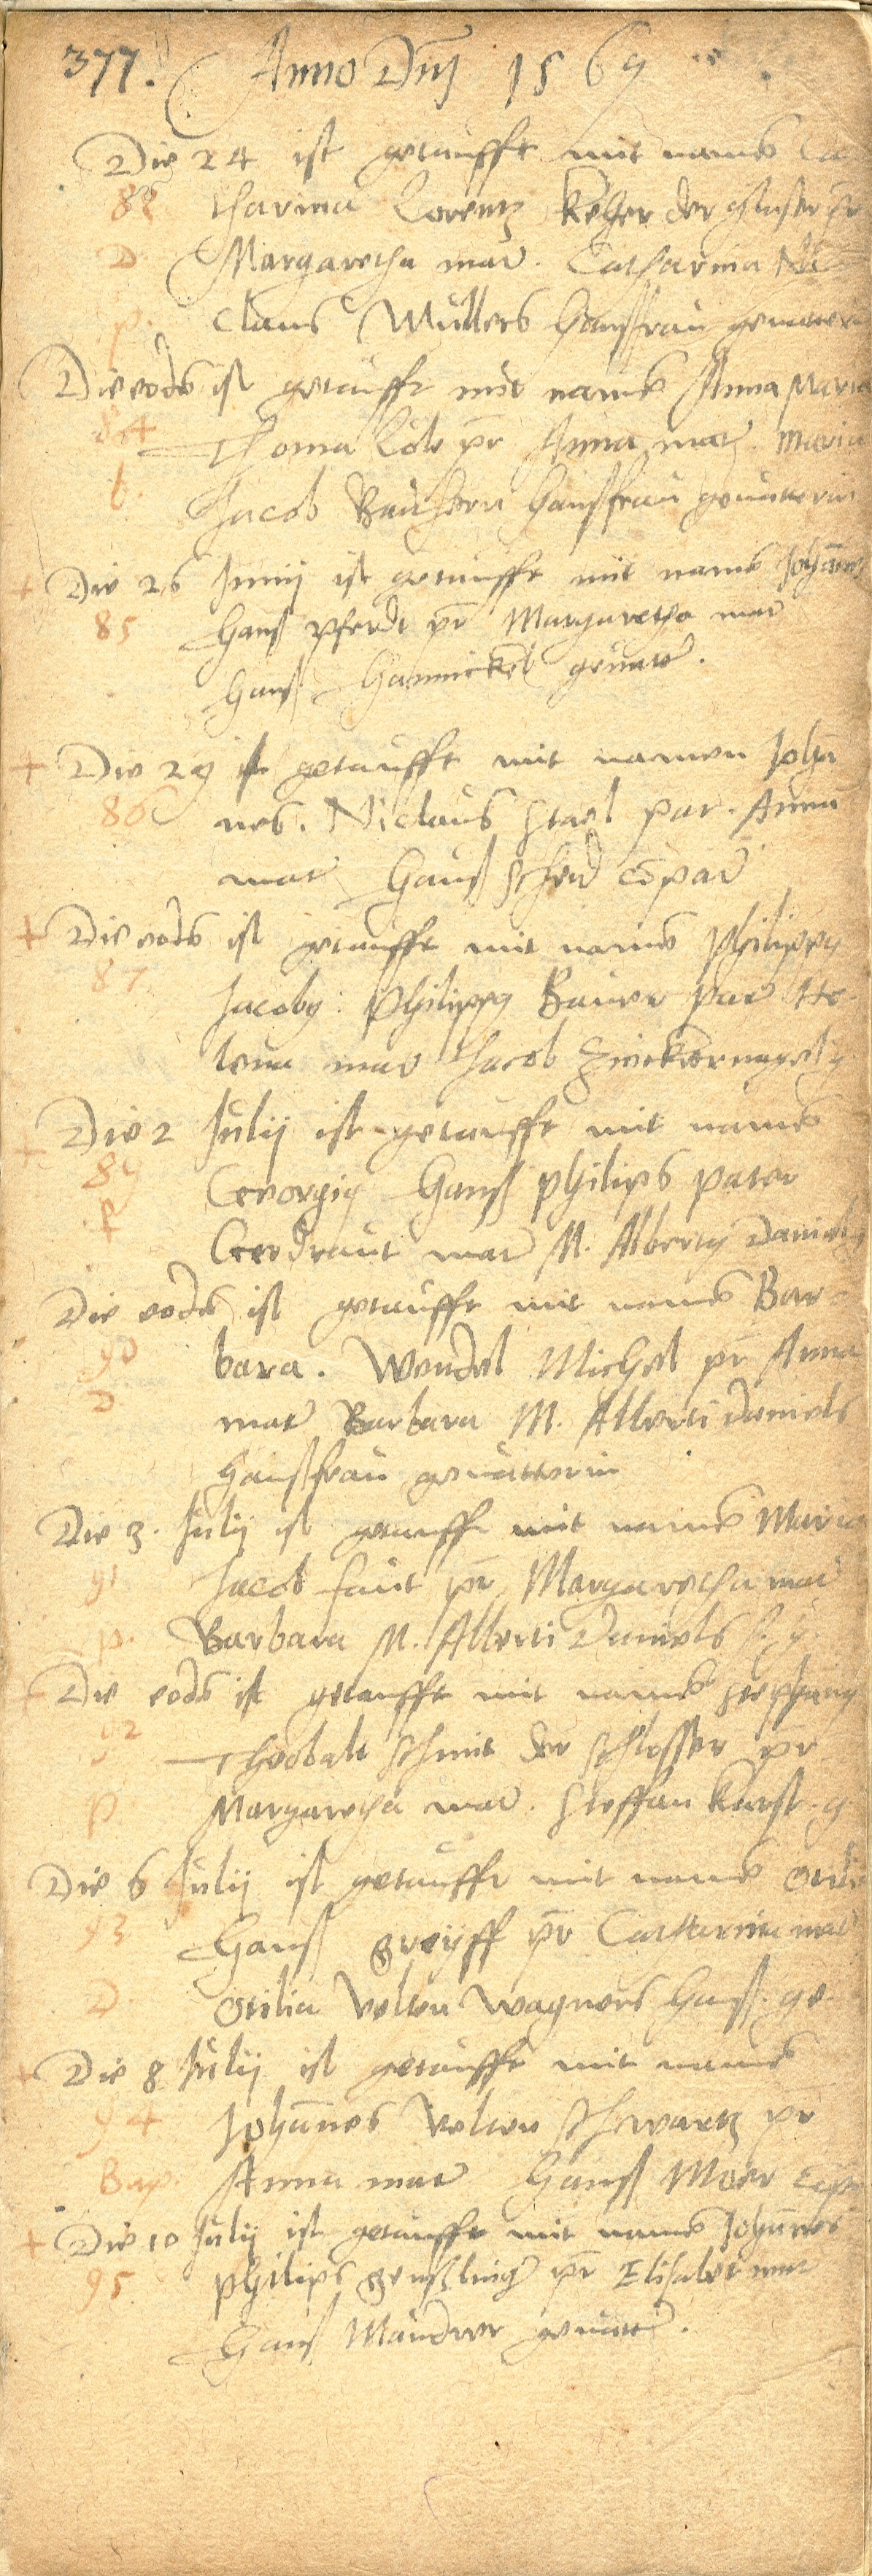 377. Anno Dnj 1569
Die 24 ist getaufft mit name Ca
88 tharina Lorentz Keher der glaser pr
D Margaretha mat. Catharina
p. Claus Mullers hausfrau geuatterin
Die eode ist getaufft mit name Anna Maria
84 Thoma Lole pr Anna mat. Maria
t. Jacob Bauhern hausfrau geuatterin
+ Die 26 Junij ist getaufft mit name Johanes
85 Hans Pferdt pr Margaretha mat
Hans Hamnickel geuatt.
+ Die 29 ist getaufft mit namen Joha
86 nes. Niclaus Stael pat. Anna
mat Hans Scherd compat
+ Die eode ist getaufft mit name Philippy
87 Jacoby. Philippy Bauer pat He-
lena mat Jacob Zwickernagely
+ Die 2 Julij ist getaufft mit name
89 Georgiy Hans Philips pater
p Gerdraut mat M. Alberty Daniely
Die eode ist getaufft mit name Bar-
90 bara. Wendel Michel pr Anna
D mat Barbara M. Alberti Daniels
hausfrau geuatterin
Die 3. Julij ist getaufft mit name Maria
91 Jacob Faut pr Margaretha mat
p. Barbara M. Alberti Daniels f. g.
+ Die eode ist getaufft mit name Stephany
92 Theobalt Schmit der schlosser pr
p Margaretha mat. Steffan Karst. g.
Die 6 Julij ist getaufft mit name Otilia
93 Hans Greyff pr Catharina mat
D. Otilia Velten Wagners hauss. ge.
+ Die 8 Julij ist getaufft mit name
94 Johanes Velten Schwartz pr
Bap. Anna mat Hans Moer
+ Die 10 Julij ist getaufft mit name Johannes
95 Philips Genslinger pr Elisabet mat
Hans Maudrer geuatt.